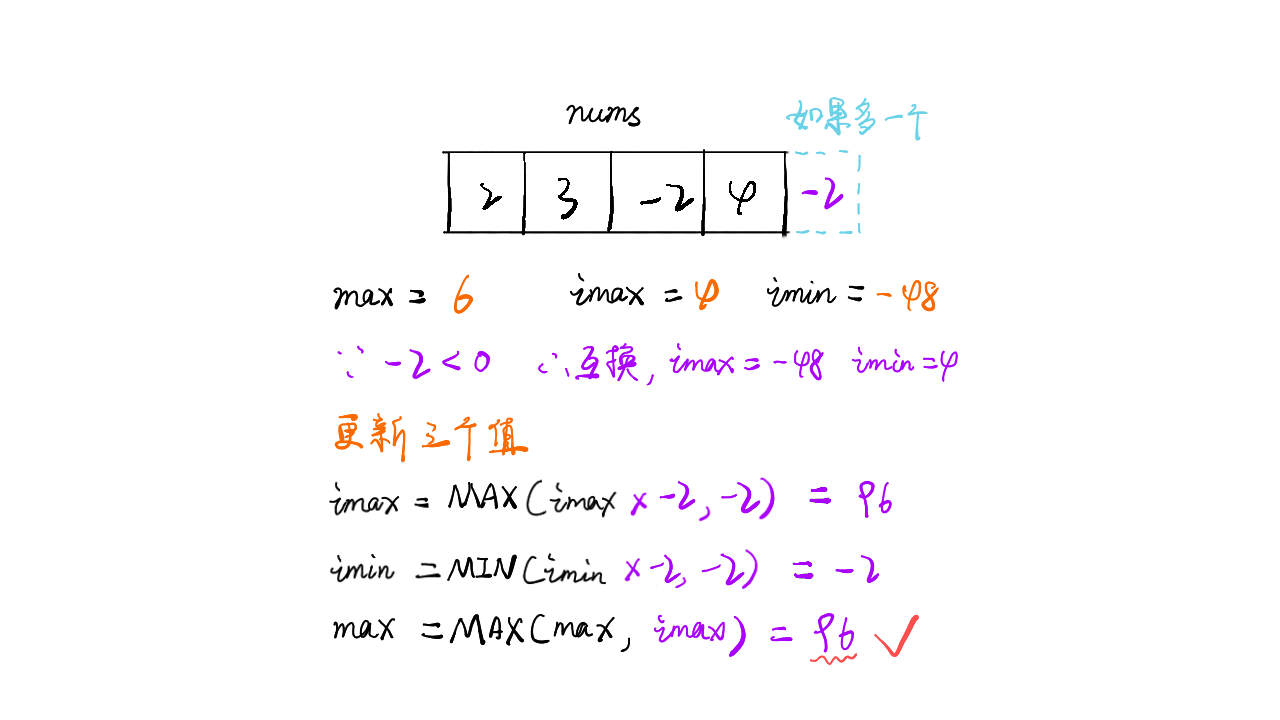 nums 如果多一个
2 3 -2 4 -2
max = 6 imax = 4 imin = -48
∵ -2 < 0 ∴ 互换, imax = -48 imin = 4
更新三个值
imax = MAX(imax × -2, -2) = 96
imin = MIN(imin × -2, -2) = -2
max = MAX(max, imax) = 96 ✓